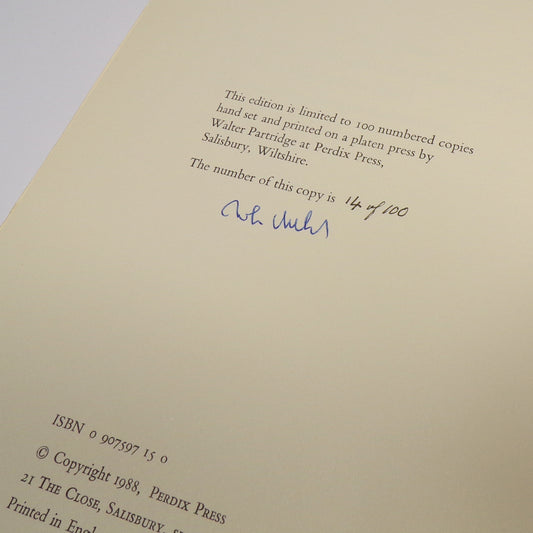 This edition is limited to 100 numbered copies
hand set and printed on a platen press by
Walter Partridge at Perdix Press,
Salisbury, Wiltshire.
The number of this copy is 14 of 100
ISBN 0 907597 15 0
© Copyright 1988, Perdix Press
21 The Close, Salisbury,
Printed in